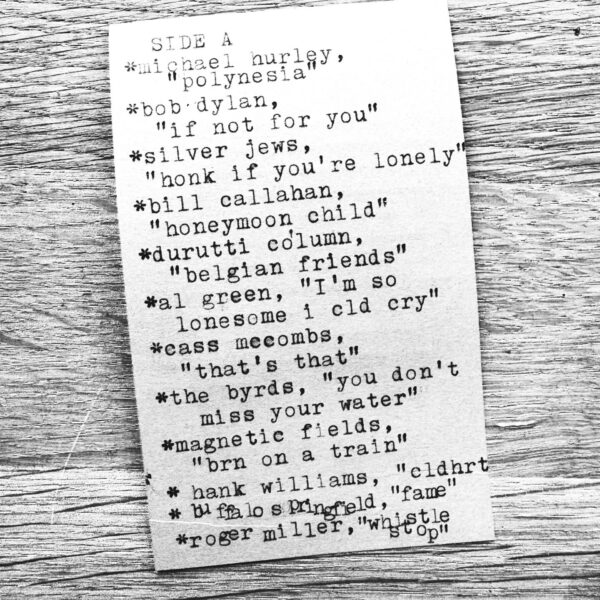 SIDE A
*michael hurley,
"polynesia"
*bob dylan,
"if not for you"
*silver jews,
"honk if you're lonely"
*bill callahan,
"honeymoon child"
*durutti column,
"belgian friends"
*al green, "I'm so
lonesome i cld cry"
*cass mccombs,
"that's that"
*the byrds, "you don't
miss your water"
*magnetic fields,
"brn on a train"
* hank williams, "cldhrt
* buffalo springfield, "fame"
*roger miller, "whistle
stop"